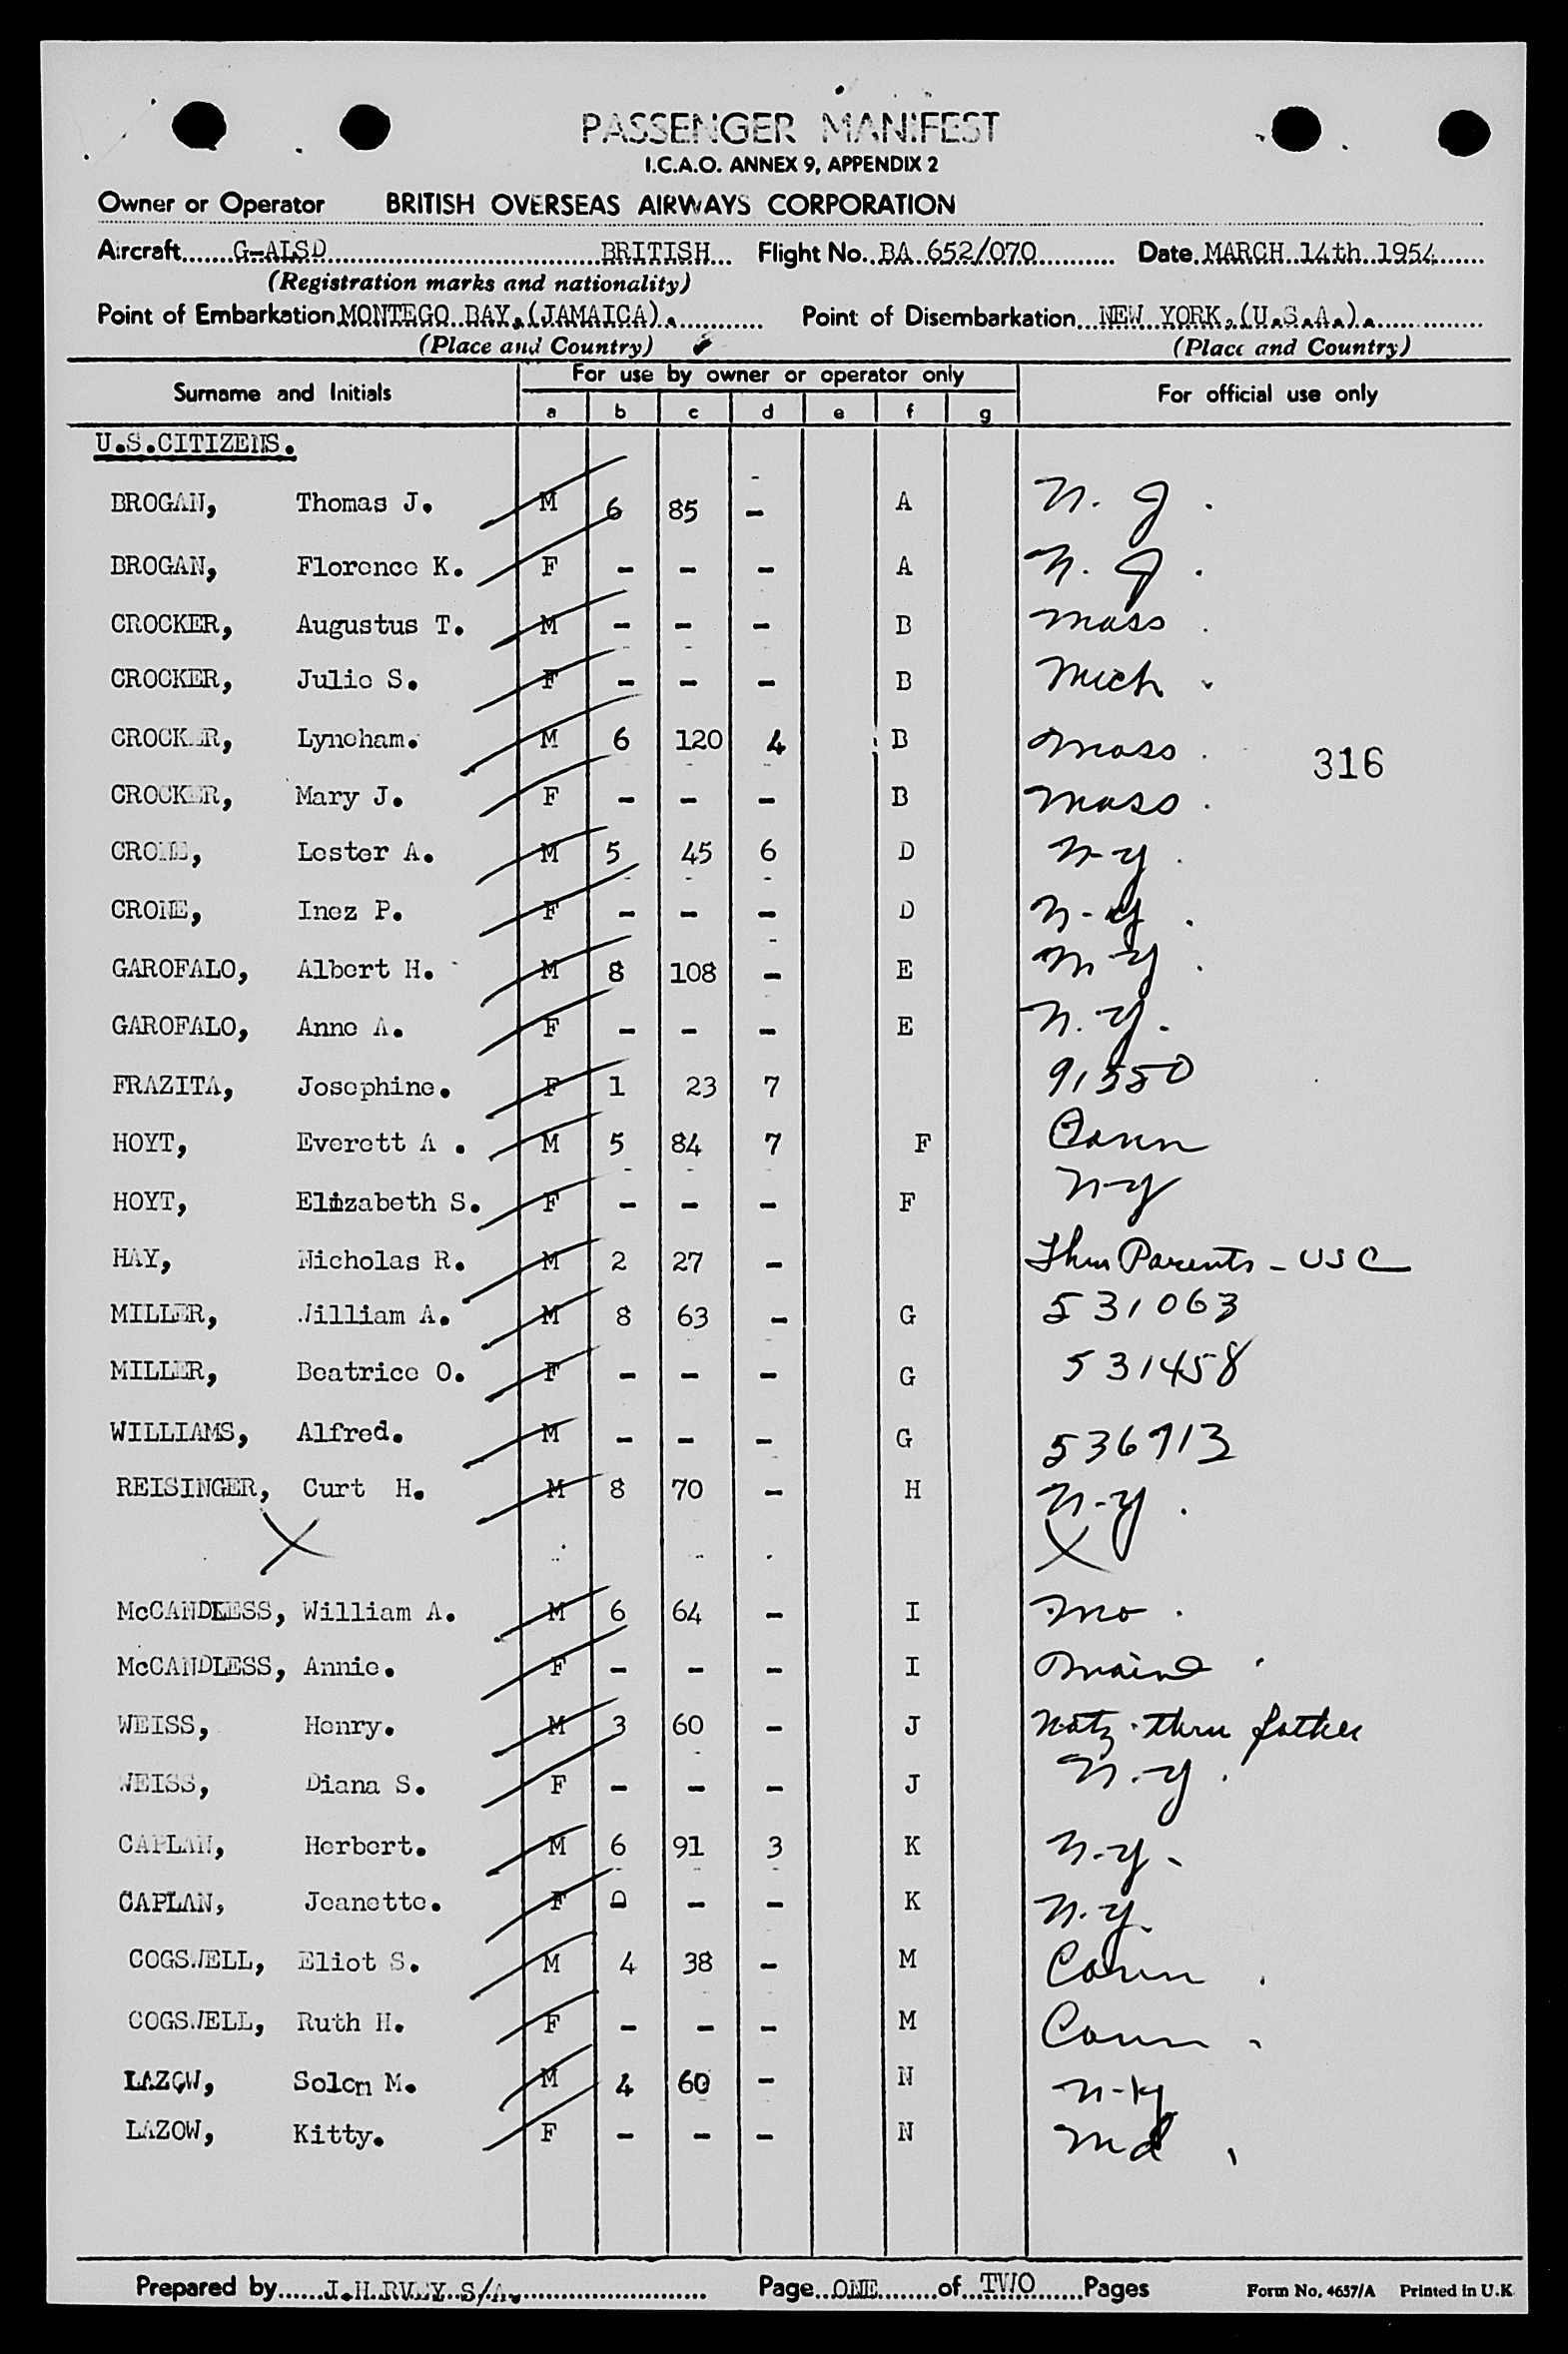 PASSENGER MANIFEST
I.C.A.O. ANNEX 9, APPENDIX 2
Owner or Operator BRITISH OVERSEAS AIRWAYS CORPORATION
Aircraft G-ALSD BRITISH Flight No. BA 652/070 Date MARCH 14th 1954
(Registration marks and nationality)
Point of Embarkation MONTEGO BAY, (JAMAICA). Point of Disembarkation NEW YORK, (U.S.A.).
(Place and Country) (Place and Country)
Surname and Initials For use by owner or operator only For official use only
a b c d e f g
U.S.CITIZENS.
BROGAN, Thomas J. M 6 85 - A N. J.
BROGAN, Florence K. F - - - A N. J.
CROCKER, Augustus T. M - - - B Mass.
CROCKER, Julie S. F - - - B Mich
CROCKER, Lyneham. M 6 120 4 B Mass. 316
CROCKER, Mary J. F - - - B Mass.
CRONE, Lester A. M 5 45 6 D N-Y.
CRONE, Inez P. F - - - D N-Y.
GAROFALO, Albert H. M 8 108 - E N-Y.
GAROFALO, Anne A. F - - - E N.Y.
FRAZITA, Josephine. F 1 23 7 91550
HOYT, Everett A . M 5 84 7 F Conn
HOYT, Elizabeth S. F - - - F N-Y
HAY, Nicholas R. M 2 27 - Thru Parents - USC
MILLER, William A. M 8 63 - G 531063
MILLER, Beatrice O. F - - - G 531458
WILLIAMS, Alfred. M - - - G 536713
REISINGER, Curt H. M 8 70 - H N-Y.
McCANDLESS, William A. M 6 64 - I Mo.
McCANDLESS, Annie. F - - - I Maine
WEISS, Henry. M 3 60 - J Natz. thru father
WEISS, Diana S. F - - - J N.Y.
CAPLAN, Herbert. M 6 91 3 K N-Y-
CAPLAN, Jeanette. F - - - K N.Y.
COGSWELL, Eliot S. M 4 38 - M Conn.
COGSWELL, Ruth H. F - - - M Conn.
LAZOW, Solon M. M 4 60 - N N-Y
LAZOW, Kitty. F - - - N Md
Prepared by J.HARVEY S/A. Page ONE of TWO Pages Form No. 4657/A Printed in U.K